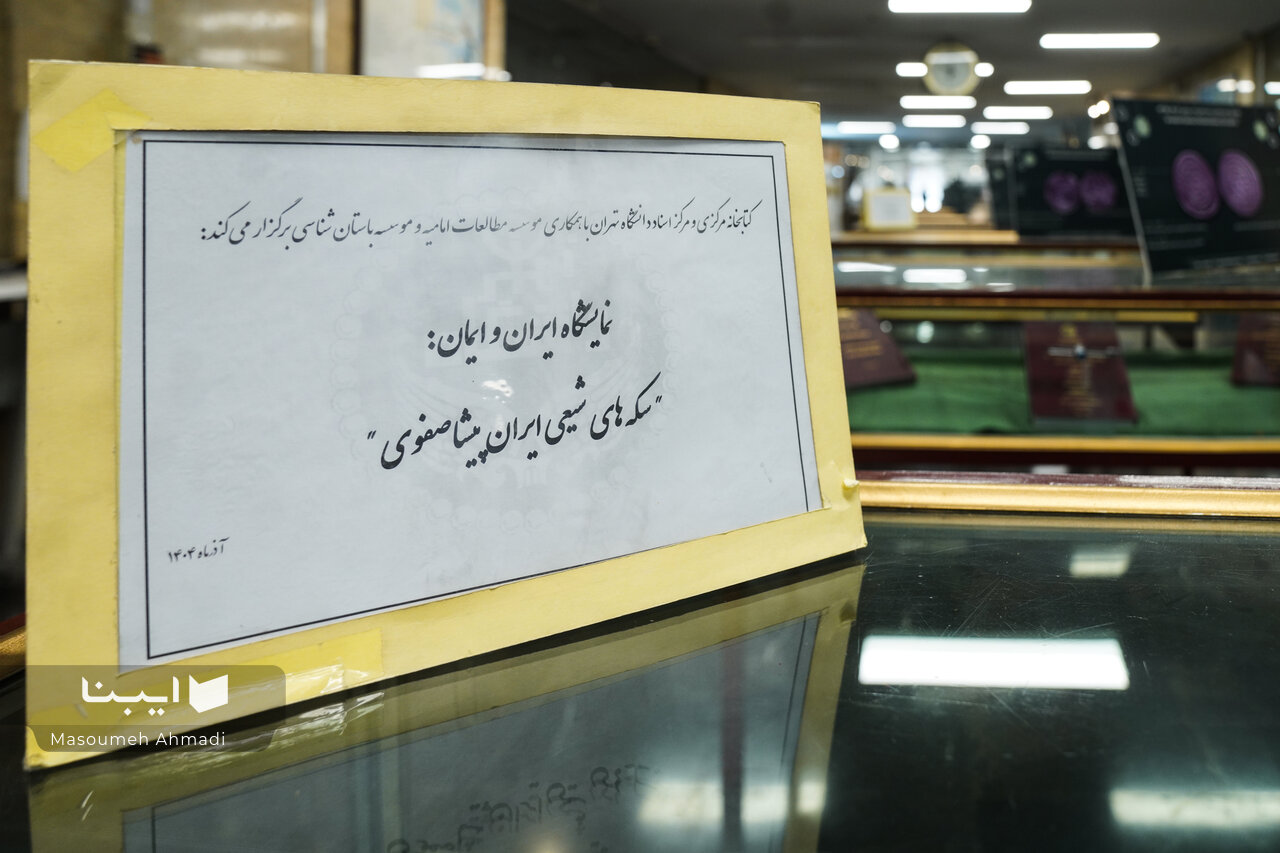 کتابخانه مرکزی و مرکز اسناد دانشگاه تهران با همکاری موسسه مطالعات امامیه و موسسه باستان شناسی برگزار می کند:
نمایشگاه ایران و ایمان:
"سکه های شیعی ایران پیشاصفوی"
آذرماه ۱۴۰۴
ایبنا
Masoumeh Ahmadi